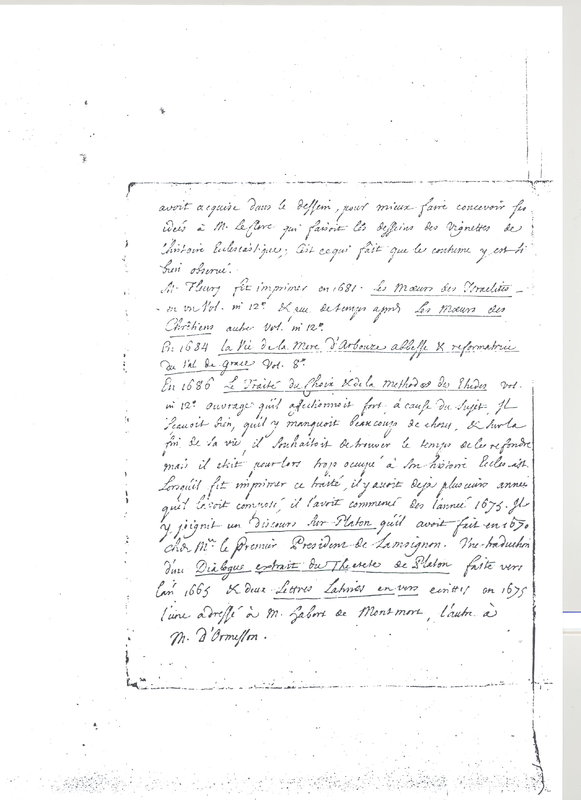 avoit acquise dans le dessein, pour mieux faire concevoir ses
idées à M. Le Clerc qui faisoit les desseins des vignettes de
l'histoire Eclesiastique; C'est ce qui fait que le costume y est si
bien observé.
M. Fleury fit imprimer en 1681. Les Mœurs des Israelites
en un Vol. in 12°. & peu de temps après Les Mœurs des
Chrêtiens autre vol. in 12°
En 1684 la Vie de la Mere D'Arbouze abbesse & reformatrice
du Val de Grace Vol. 8°.
En 1686 Le Traité du Choix & de la Methode des Etudes vol.
in 12°. ouvrage qu'il affectionnoit fort, à cause du sujet. Il
scavoit bien, qu'il y manquoit beaucoup de choses, & sur la
fin de sa vie, il souhaitoit de trouver le temps de les refondre
mais il etoit pour lors trop occupé à son histoire Eccles.ast.
Lorsqu'il fit imprimer ce traité, il y avoit deja plusieurs années
qu'il l'avoit composé, il l'avoit commencé des l'année 1675. Il
y joignit un Discours sur Platon qu'il avoit fait en 1670
chez Mr. le Premier President de Lamoignon. Une traduction
d'un Dialogue extrait du Theetete de Platon faite vers
l'an 1665 & deux Lettres Latines en vers ecrittes en 1675
l'une adressé à M. Habert de Montmort, l'autre à
M. D'Ormesson.